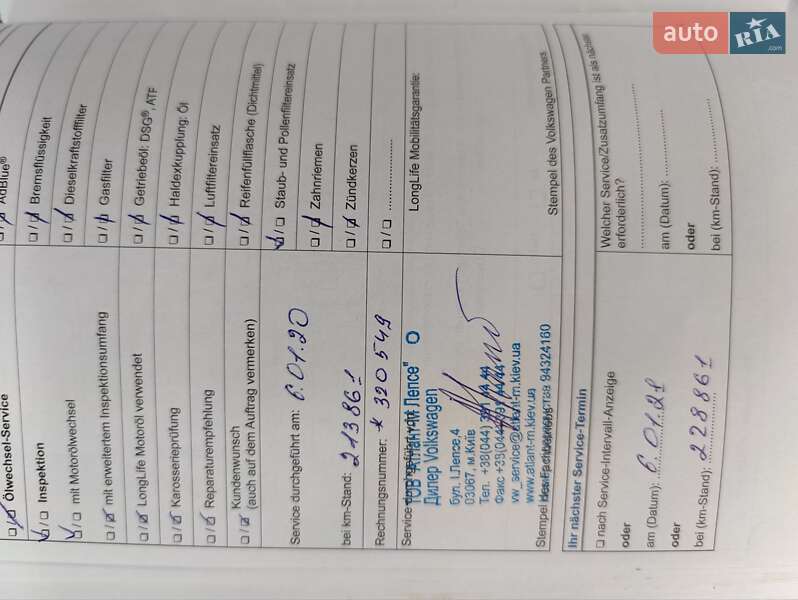 Ölwechsel-Service
Inspektion
mit Motorölwechsel
mit erweitertem Inspektionsumfang
LongLife Motoröl verwendet
Karosserieprüfung
Reparaturempfehlung
Kundenwunsch
(auch auf dem Auftrag vermerken)
Service durchgeführt am: 6.01.20
bei km-Stand: 213861
Rechnungsnummer: * 320549
Service durchgeführt von:
ТОВ "Атлант-М Лепсе"
Дилер Volkswagen
бул. І.Лепсе,4
03067, м.Київ
Тел. +38(044)
Факс +38(044)
vw_service@atlant-m.kiev.ua
www.atlant-m.kiev.ua
94324160
Stempel des Fachbetriebs
AdBlue®
Bremsflüssigkeit
Dieselkraftstofffilter
Gasfilter
Getriebeöl: DSG®, ATF
Haldexkupplung: Öl
Luftfiltereinsatz
Reifenfüllflasche (Dichtmittel)
Staub- und Pollenfiltereinsatz
Zahnriemen
Zündkerzen
LongLife Mobilitätsgarantie:
Stempel des Volkswagen Partners
Ihr nächster Service-Termin
nach Service-Intervall-Anzeige
oder
am (Datum): 6.01.21
oder
bei (km-Stand): 228861
Welcher Service/Zusatzumfang ist als nächster
erforderlich?
am (Datum):
oder
bei (km-Stand):
auto RIA.com